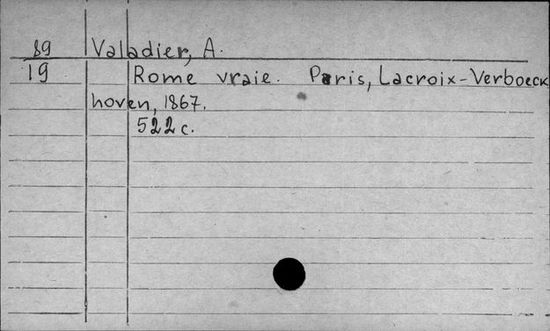 89 Valadier, A.
19 Rome vraie. Paris, Lacroix-Verboeck
hoven, 1867.
522 c.